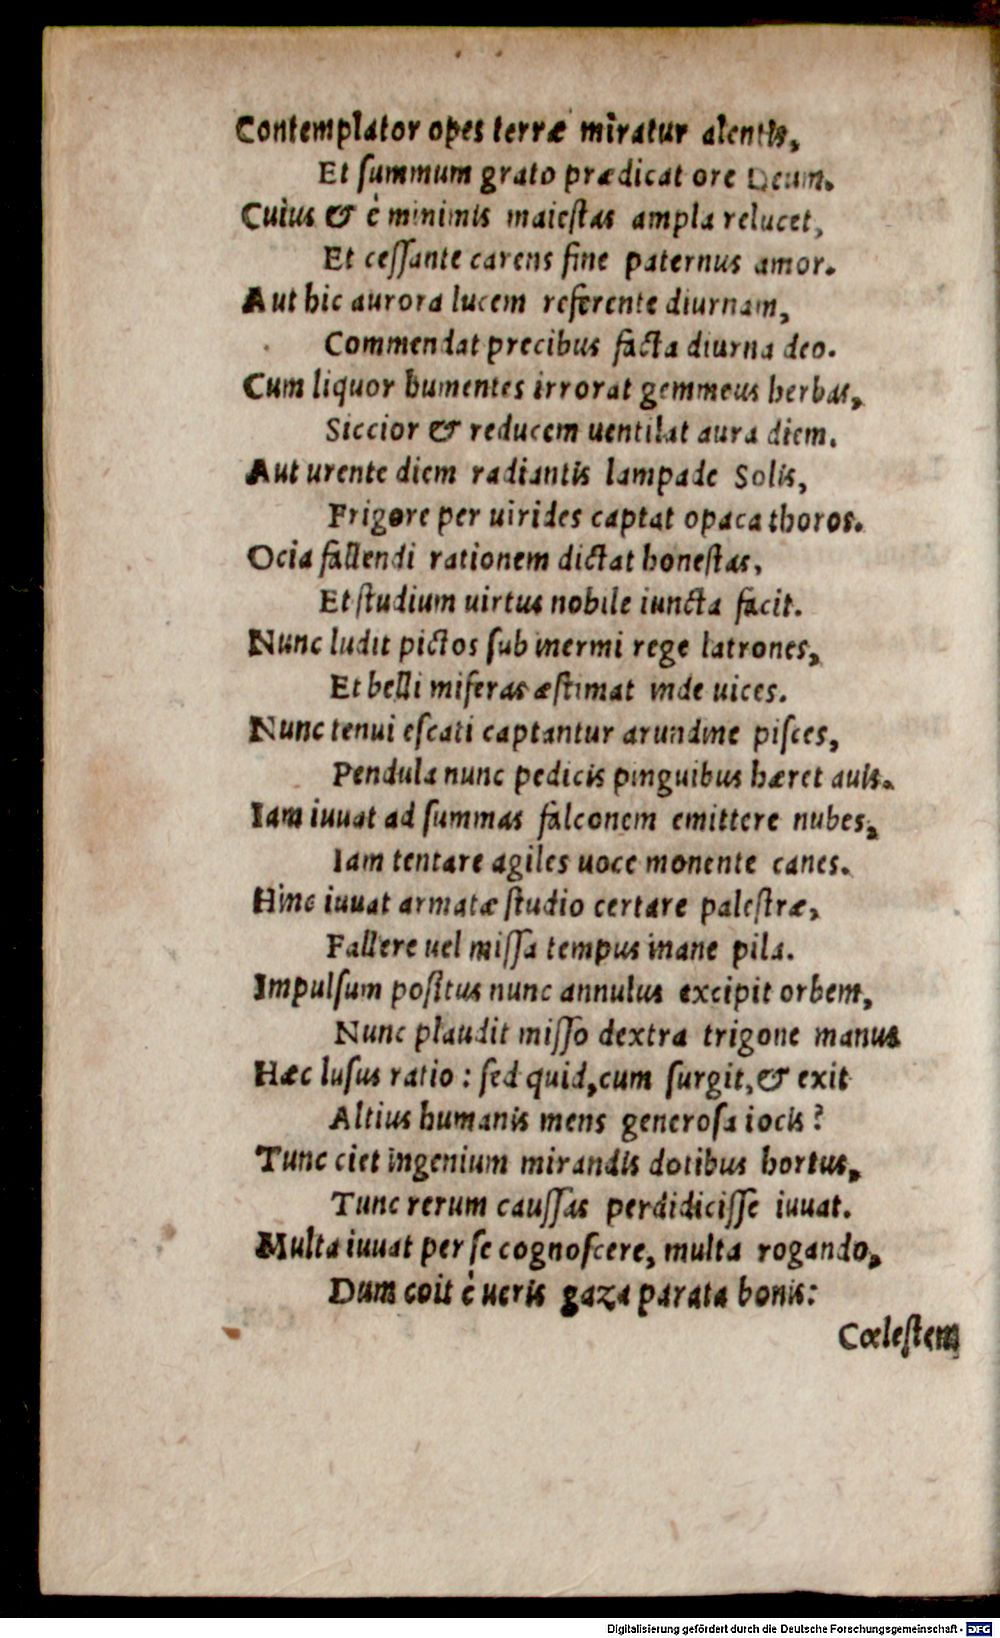 Contemplator opes terræ miratur alentis,
Et ſummum grato prædicat ore Deum.
Cuius & è minimis maieſtas ampla relucet,
Et ceſſante carens fine paternus amor.
Aut hic aurora lucem referente diurnam,
Commendat precibus facta diurna deo.
Cum liquor humentes irrorat gemmeus herbas,
Siccior & reducem uentilat aura diem.
Aut urente diem radiantis lampade Solis,
Frigore per uirides captat opaca thoros.
Ocia fallendi rationem dictat honeſtas,
Et ſtudium uirtus nobile iuncta facit.
Nunc ludit pictos ſub inermi rege latrones,
Et belli miſeras æſtimat inde uices.
Nunc tenui eſcati captantur arundine piſces,
Pendula nunc pedicis pinguibus hæret auis.
Iam iuuat ad ſummas falconem emittere nubes,
Iam tentare agiles uoce monente canes.
Hinc iuuat armatæ ſtudio certare paleſtræ,
Fallere uel miſſa tempus inane pila.
Impulſum poſitus nunc annulus excipit orbem,
Nunc plaudit miſſo dextra trigone manus
Hæc luſus ratio: ſed quid, cum ſurgit, & exit
Altius humanis mens generoſa iocis?
Tunc ciet ingenium mirandis dotibus hortus,
Tunc rerum cauſſas perdidiciſſe iuuat.
Multa iuuat per ſe cognoſcere, multa rogando,
Dum coit è ueris gaza parata bonis:
Cœleſtem
Digitalisierung gefördert durch die Deutsche Forschungsgemeinschaft - DFG